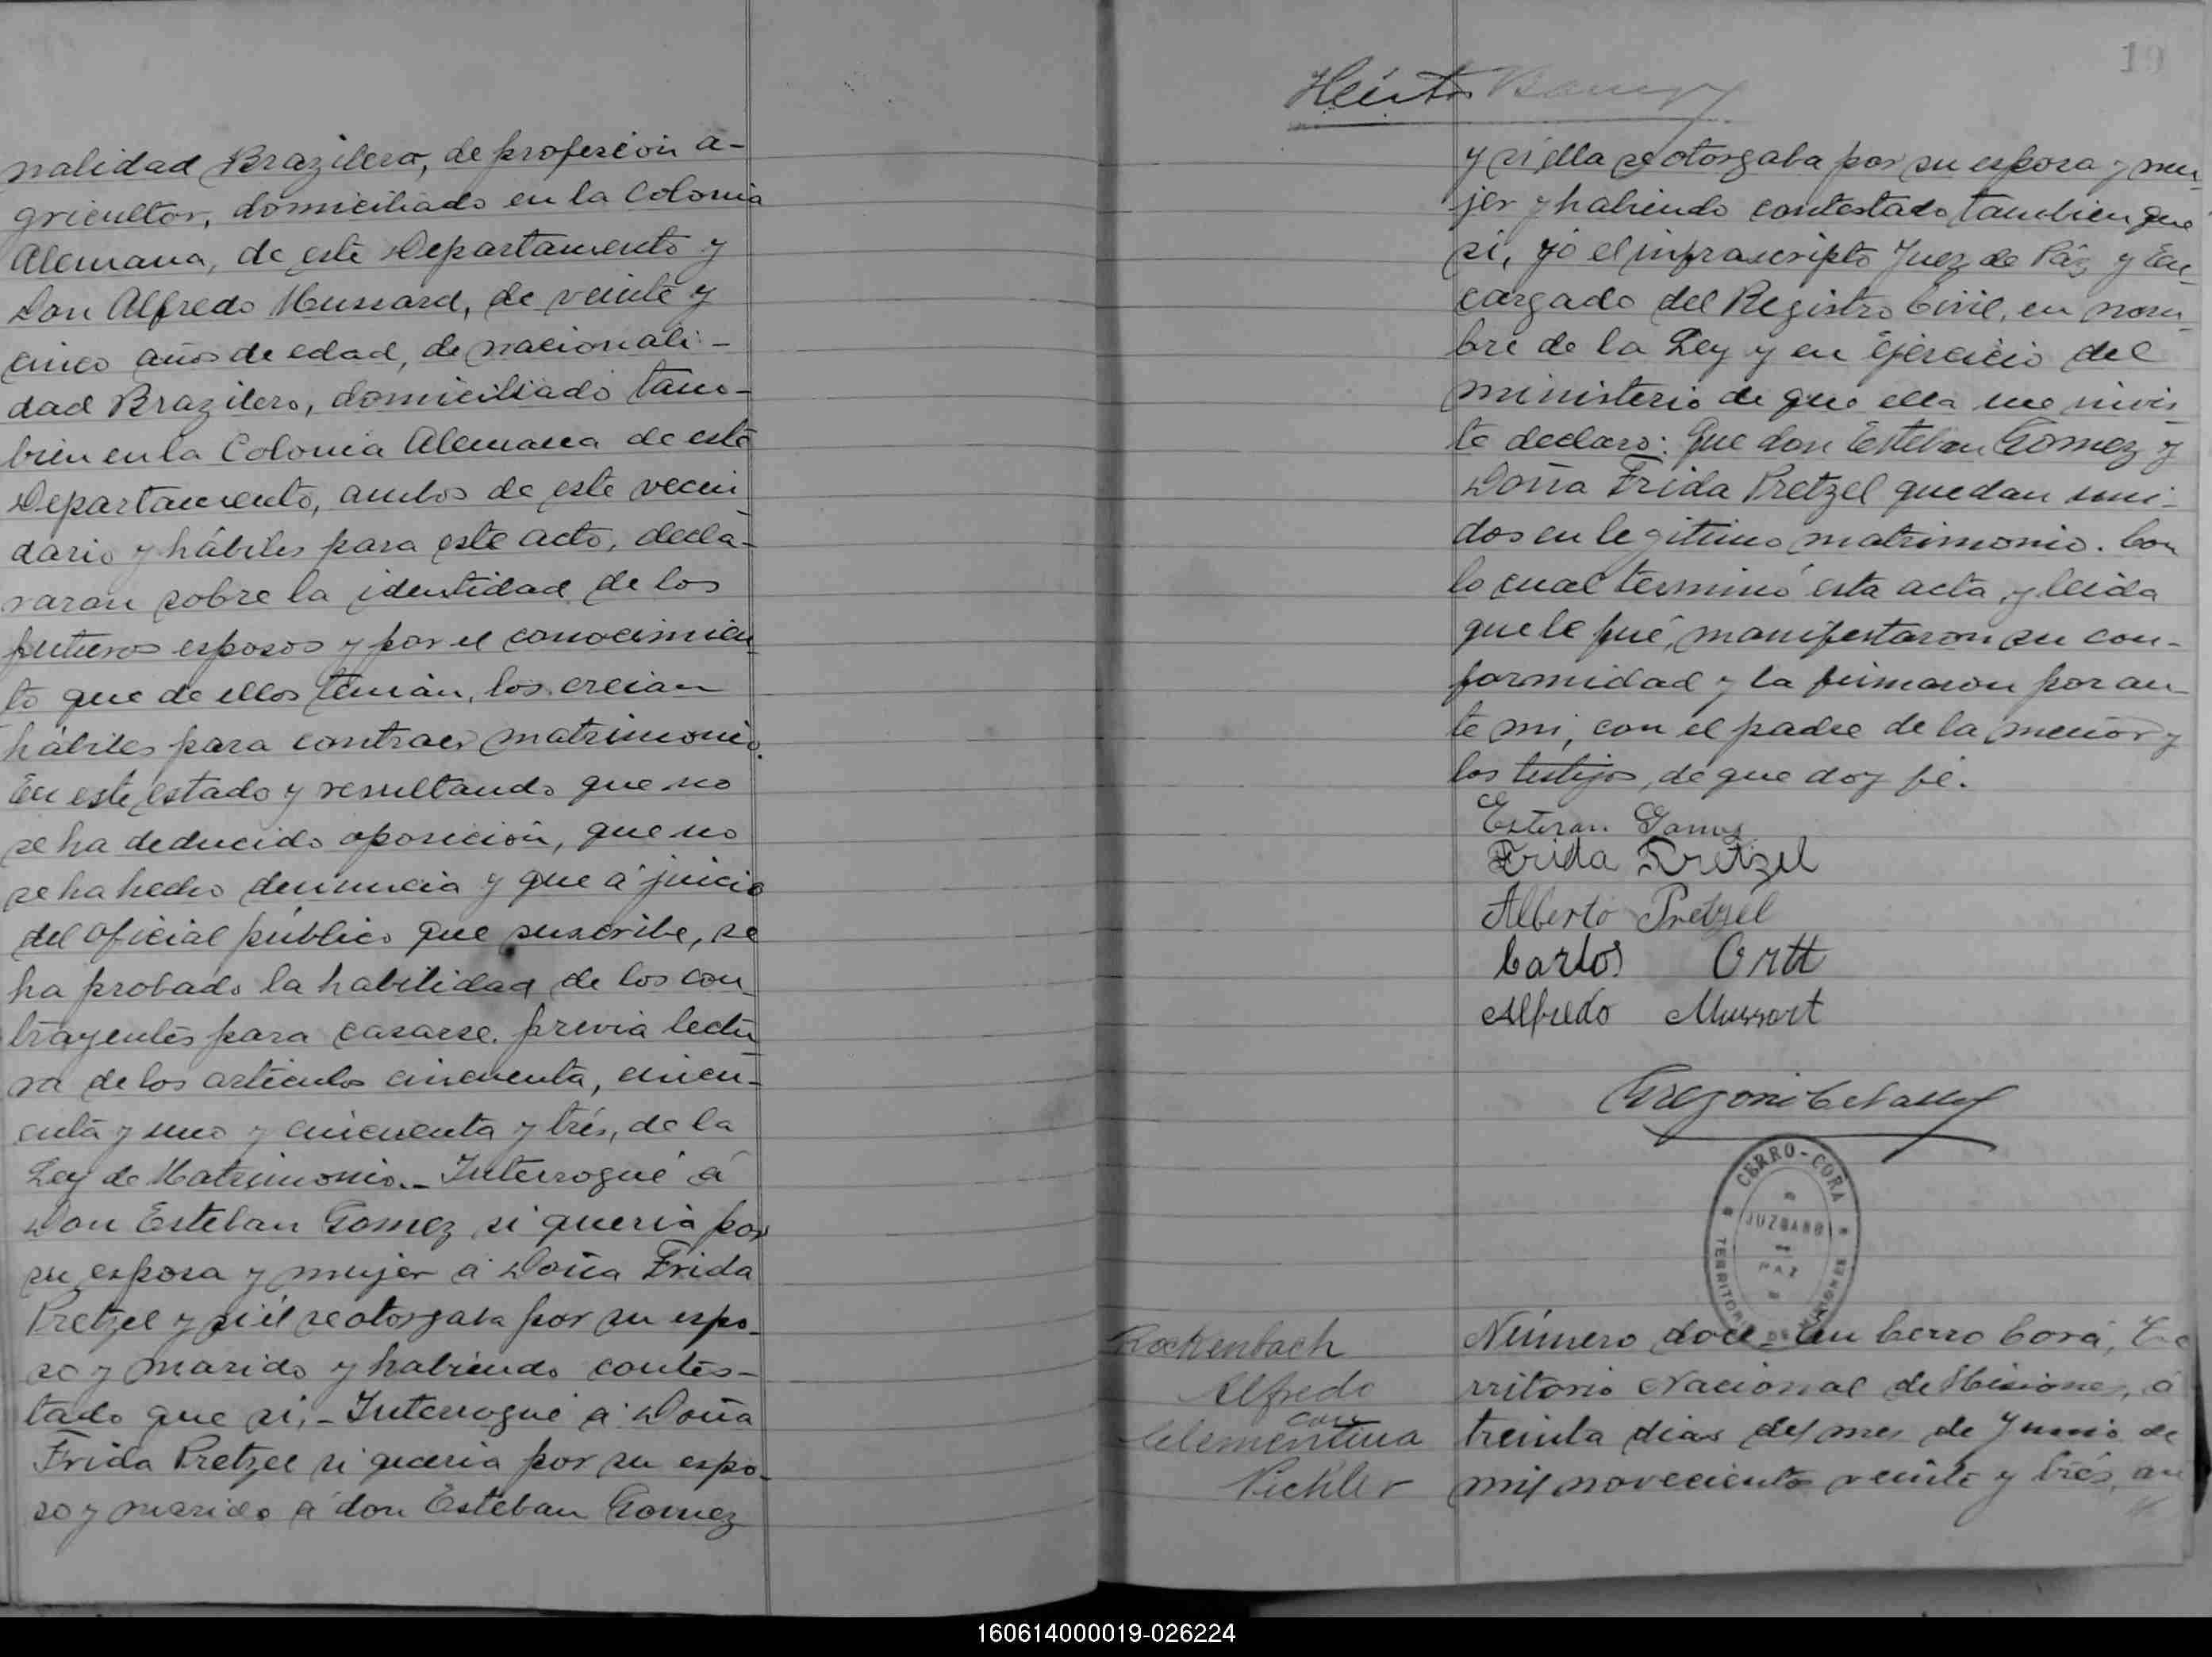 nalidad Brazilera, de profesión a-
gricultor, domiciliado en la Colonia
Alemana, de este Departamento y
Don Alfredo Mussard, de veinte y
cinco años de edad, de nacionali-
dad Brazilero, domiciliado tam-
bien en la Colonia Alemana de este
Departamento, ambos de este vecin
dario y hábiles para este acto, decla-
raron sobre la identidad de los
futuros esposos y por el conocimien
to que de ellos tenian, los creian
hábiles para contraer matrimonio.
En este estado y resultando que no
se ha deducido oposición, que no
se ha hecho denuncia y que á juicio
del oficial público que suscribe, se
ha probado la habilidad de los con
trayentes para casarse, previa lectu
ra de los articulos cincuenta, cincu-
enta y uno y cincuenta y trés, de la
Ley de Matrimonio.- Interrogué á
Don Esteban Gomez si queria por
su esposa y mujer á Doña Frida
Pretzel y si él se otorgaba por su espo-
so y marido y habiendo contes-
tado que si,- Interrogué á Doña
Frida Pretzel si queria por su espo-
so y marido á don Esteban Gomez
19
y si ella se otorgaba por su esposa y mu-
jer y habiendo contestado tambien que
si, yo el infrascripto Juez de Páz y En-
cargado del Registro Civil, en nom-
bre de la Ley y en ejercicio del
ministerio de que ella me invis
te declaro: Que don Esteban Gomez y
Doña Frida Pretzel quedan uni-
dos en legitimo matrimonio. Con
lo cual terminó esta acta, y leida
que le fué, manifestaron su con-
formidad y la firmaron por an-
te mi, con el padre de la menor y
los testijos, de que doy fé.
Estevan Gomez
Frida Pretzel
Alberto Pretzel
Carlos Ortt
Alfredo Mussort
CERRO-CORA
JUZGADO
DE
PAZ
TERRITORIO DE MISIONES
Rockenbach
Alfredo
con
Clementina
Pichler
Número doce. En Cerro Corá, Te
rritorio Nacional de Misiones, á
treinta dias del mes de Junio de
mil novecientos veinte y trés, an
160614000019-026224